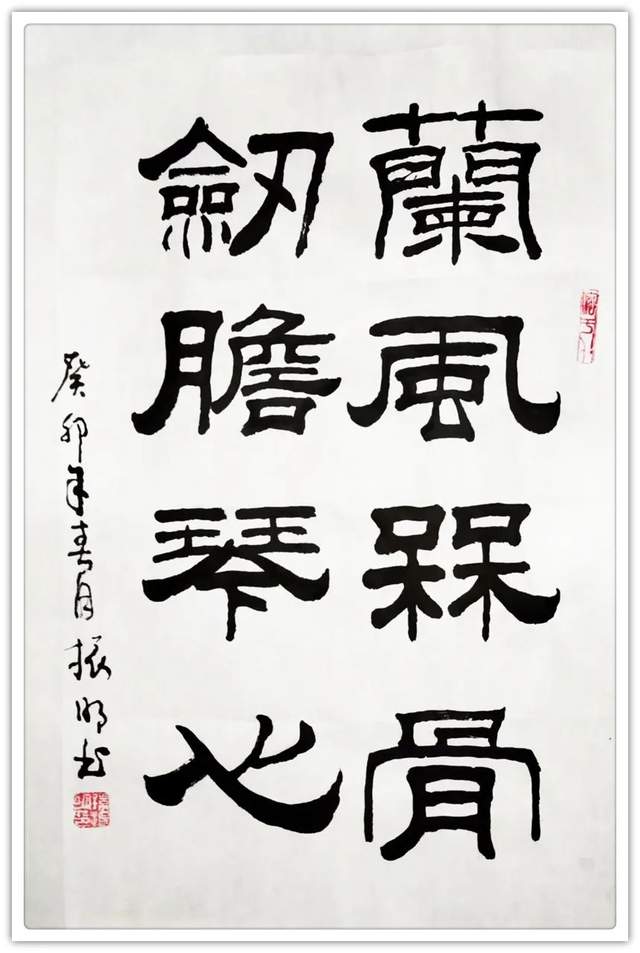 蘭風槑骨
劒膽琴心
癸卯年春月振明书